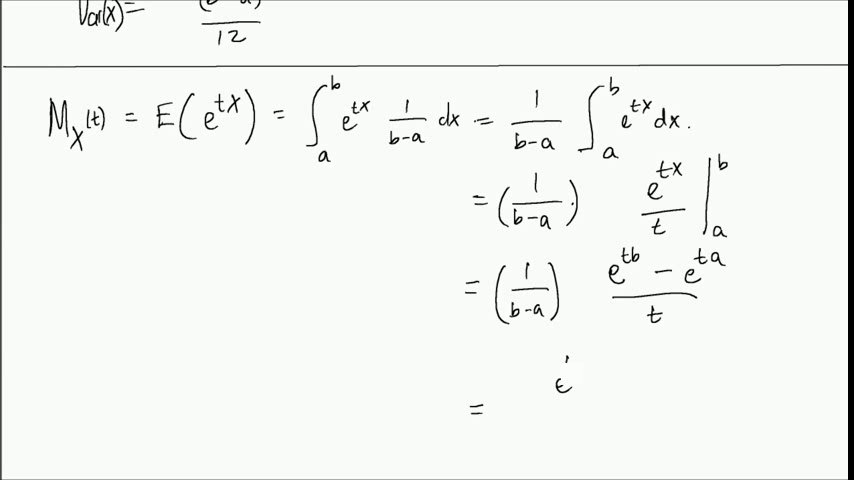 Var(x) = (b-a)² / 12
M_X(t) = E(e^{tX}) = ∫_a^b e^{tx} 1/(b-a) dx = 1/(b-a) ∫_a^b e^{tx} dx.
= (1/(b-a) ·) e^{tx}/t |_a^b
= (1/(b-a)) (e^{tb} - e^{ta})/t
= e